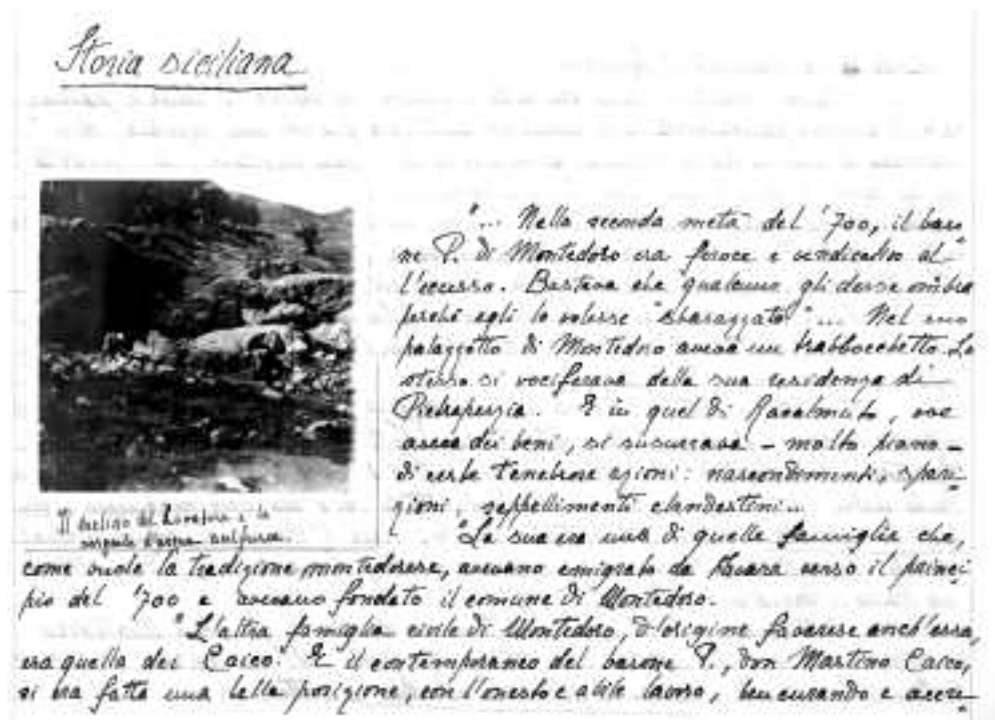 Storia siciliana
"... Nella seconda metà del '700, il baro=
ne P. di Montedoro era feroce e vendicativo al=
l'eccesso. Bastava che qualcuno gli desse ombra
perché egli lo volesse "sbarazzato"... Nel suo
palazzotto di Montedoro aveva un trabbocchetto. Lo
stesso si vociferava della sua residenza di
Pietraperzia. E in quel di Racalmuto, ove
aveva dei beni, si susurrava - molto piano -
di certe tenebrose azioni: nascondimenti, spari=
zioni, seppellimenti clandestini...
Il declino del e la
sorgente d'acqua sulfurea.
"La sua era una di quelle famiglie che,
come vuole la tradizione montedorese, avevano emigrato da Favara verso il princi=
pio del '700 e avevano fondato il comune di Montedoro.
"L'altra famiglia civile di Montedoro, d'origine favarese anch'essa,
era quella dei Caico. E il contemporaneo del barone P., don Martino Caico,
si era fatta una bella posizione, con l'onesto e abile lavoro, ben curando e accre=